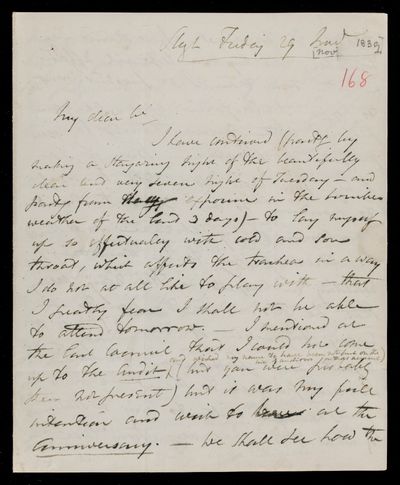 Friday 29
[Nov. 1839]
168
My dear Sir,
I have contrived (partly by
making a stargazing night of the beautifully
clear and very severe night of Tuesday – and
partly from exposure in the horrible
weather of the last 3 days) – to lay myself
up so effectually with cold and sore
throat, which affects the trachea in a way
I do not at all like to play with – that
I greatly fear I shall not be able
to attend tomorrow. – I mentioned at
the last Council that I could not come
up to the Audit, (
and wished my name to have been
on that account
) (but you were
not present) but it was my full
intention and wish to be at the
Anniversary. – We shall see how the